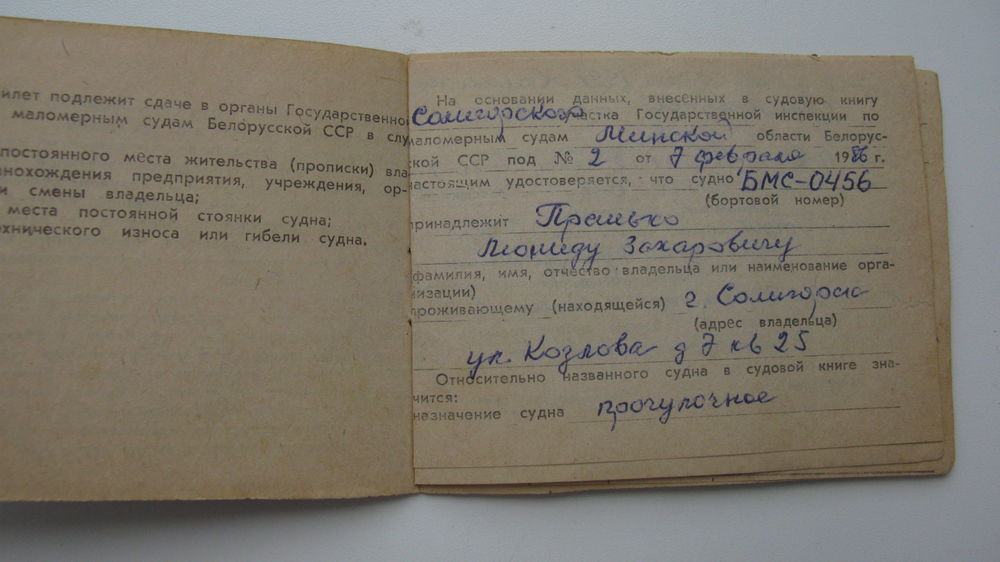 илет подлежит сдаче в органы Государственной
маломерным судам Белорусской ССР в слу
постоянного места жительства (прописки) вла
нохождения предприятия, учреждения, ор-
и смены владельца;
места постоянной стоянки судна;
хнического износа или гибели судна.
На основании данных, внесённых в судовую книгу
Солигорского участка Государственной инспекции по
маломерным судам Минской области Белорус-
ской ССР под № 2 от 7 февраля 1986 г.
настоящим удостоверяется, что судно БМС-0456
(бортовой номер)
принадлежит
Захаровичу
фамилия, имя, отчество владельца или наименование орга-
низации)
проживающему (находящейся) г. Солигорск
(адрес владельца)
ул. Козлова д 7 кв 25
Относительно названного судна в судовой книге зна-
чится:
назначение судна прогулочное